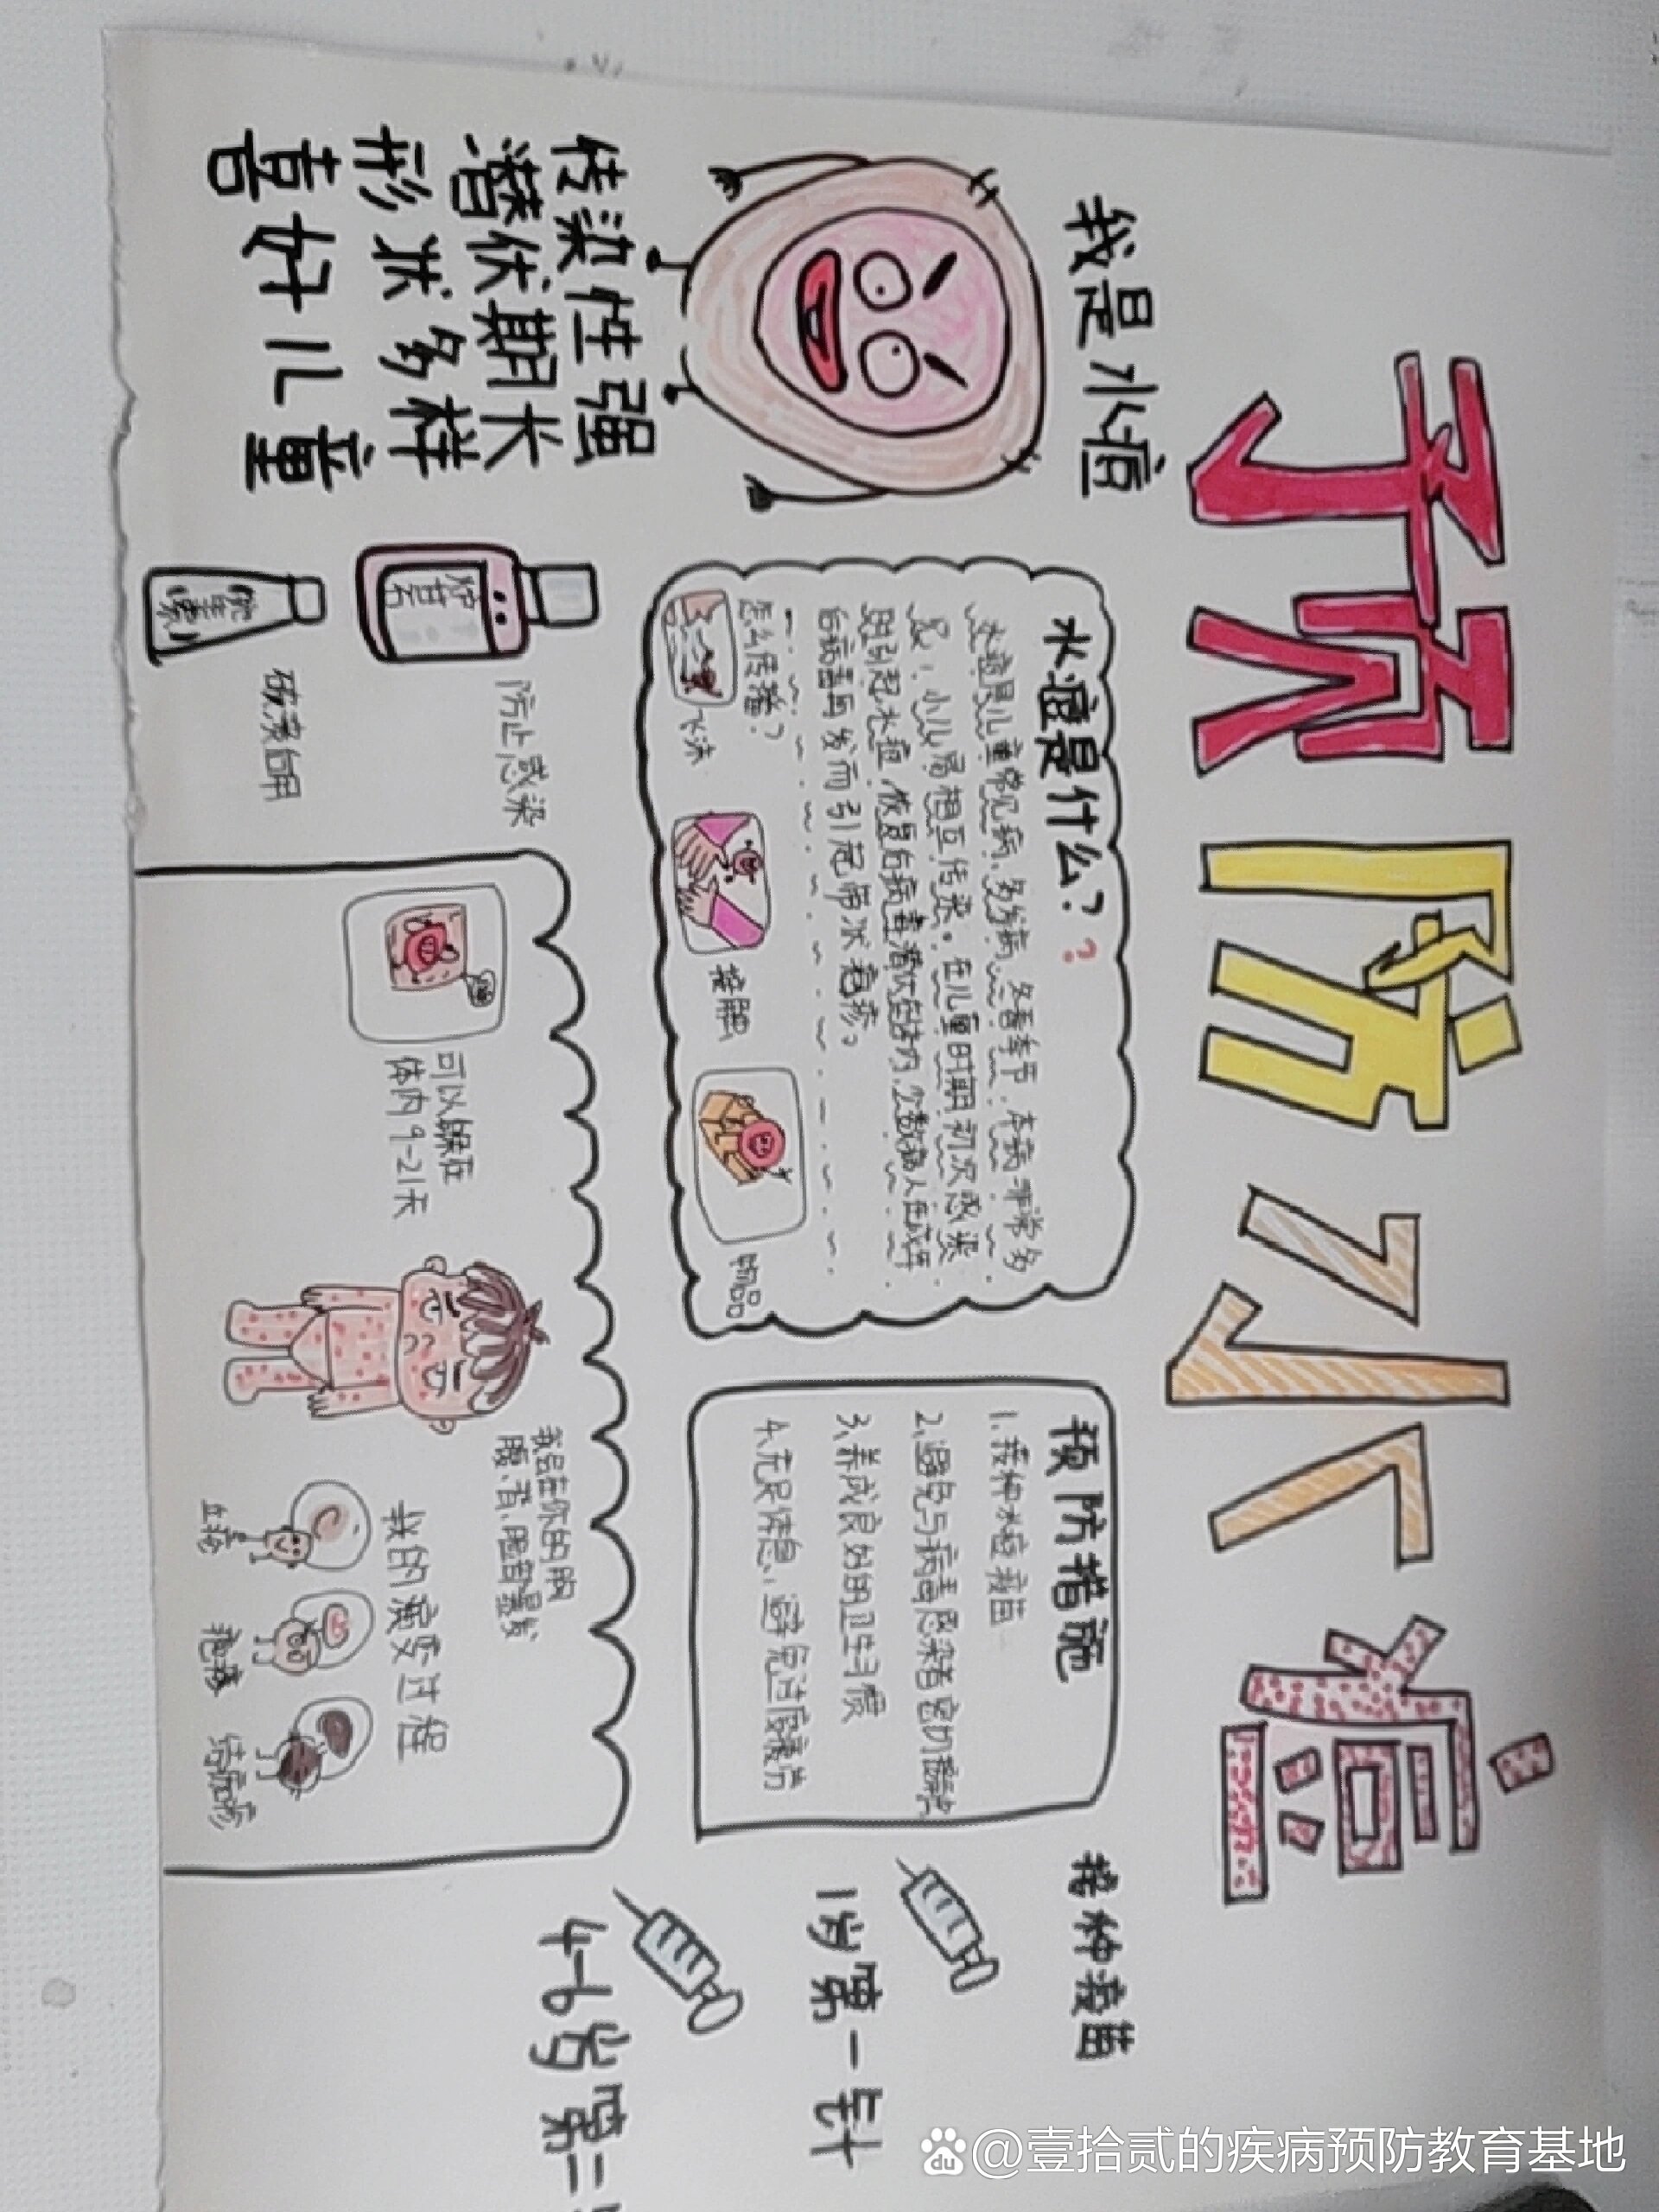 预防水痘
我是水痘
传染性强
潜伏期长
形状多样
喜好儿童
水痘是什么？？
水痘是儿童常见病、多发病，冬春季节，本病非常多
见，小儿易相互传染。在儿童时期初次感染
引起水痘，恢复后病毒潜伏在体内，少数病人在成年
后病毒再发而引起带状疱疹。
怎么传播？
飞沫
接触
物品
预防措施
1.接种水痘疫苗
2.避免与病毒感染者密切接触
3.养成良好的卫生习惯
4.充足休息，避免过度疲劳
接种疫苗
1岁第一针
4-6岁第二
炉甘石
防止感染
破溃后用
可以躲在
体内9-21天
我会在你的胸
腹、背、脸部爆发
我的演变过程
丘疹
疱疹
结痂疹
@壹拾贰的疾病预防教育基地